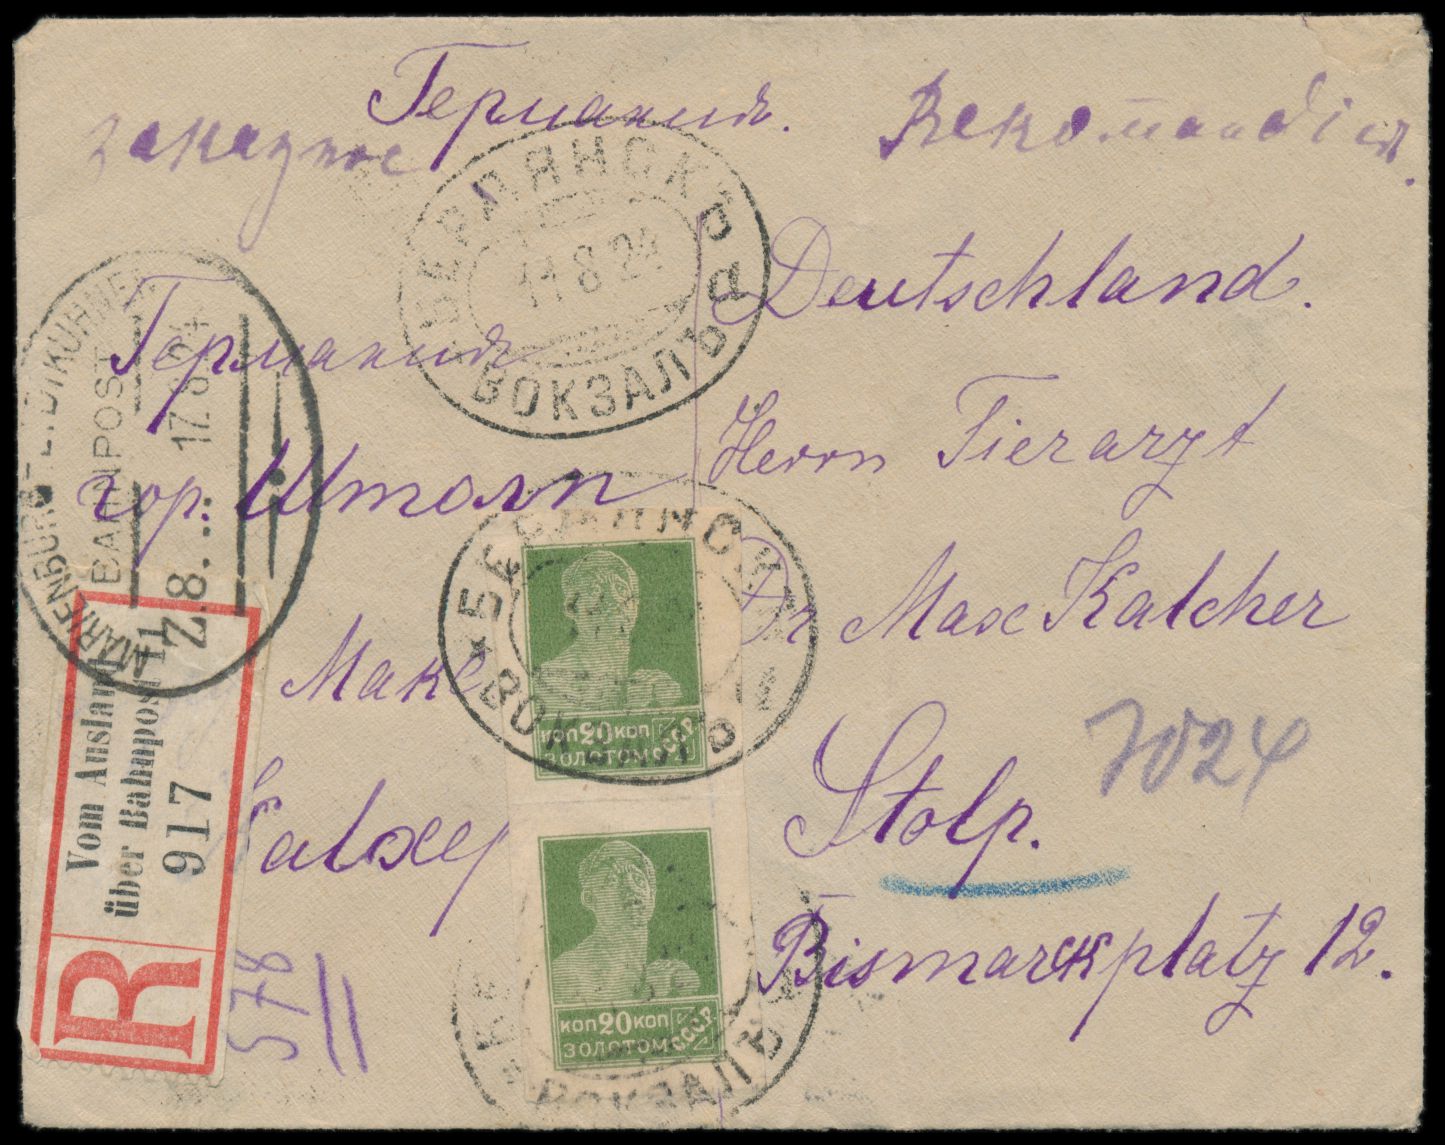 Германия.
заказное
Rекоманdія.
БЕРДЯНСКЪ
11.8.24
а
ВОКЗАЛЪ
Deutschland.
Германия
Herrn Tierarzt
гор. Штолп
Dr Max Kalcher
Макс
Stolp.
7024
Bismarckplatz 12.
MARIENBURG
EYDTKUHNEN
BAHNPOST
Z.8....
17.8.24
Vom Ausland
über Bahnpost 11
917
R
578
КОП 20 КОП
ЗОЛОТОМ
СССР
ВОКЗАЛЪ
КОП 20 КОП
ЗОЛОТОМ
СССР
ВОКЗАЛЪ